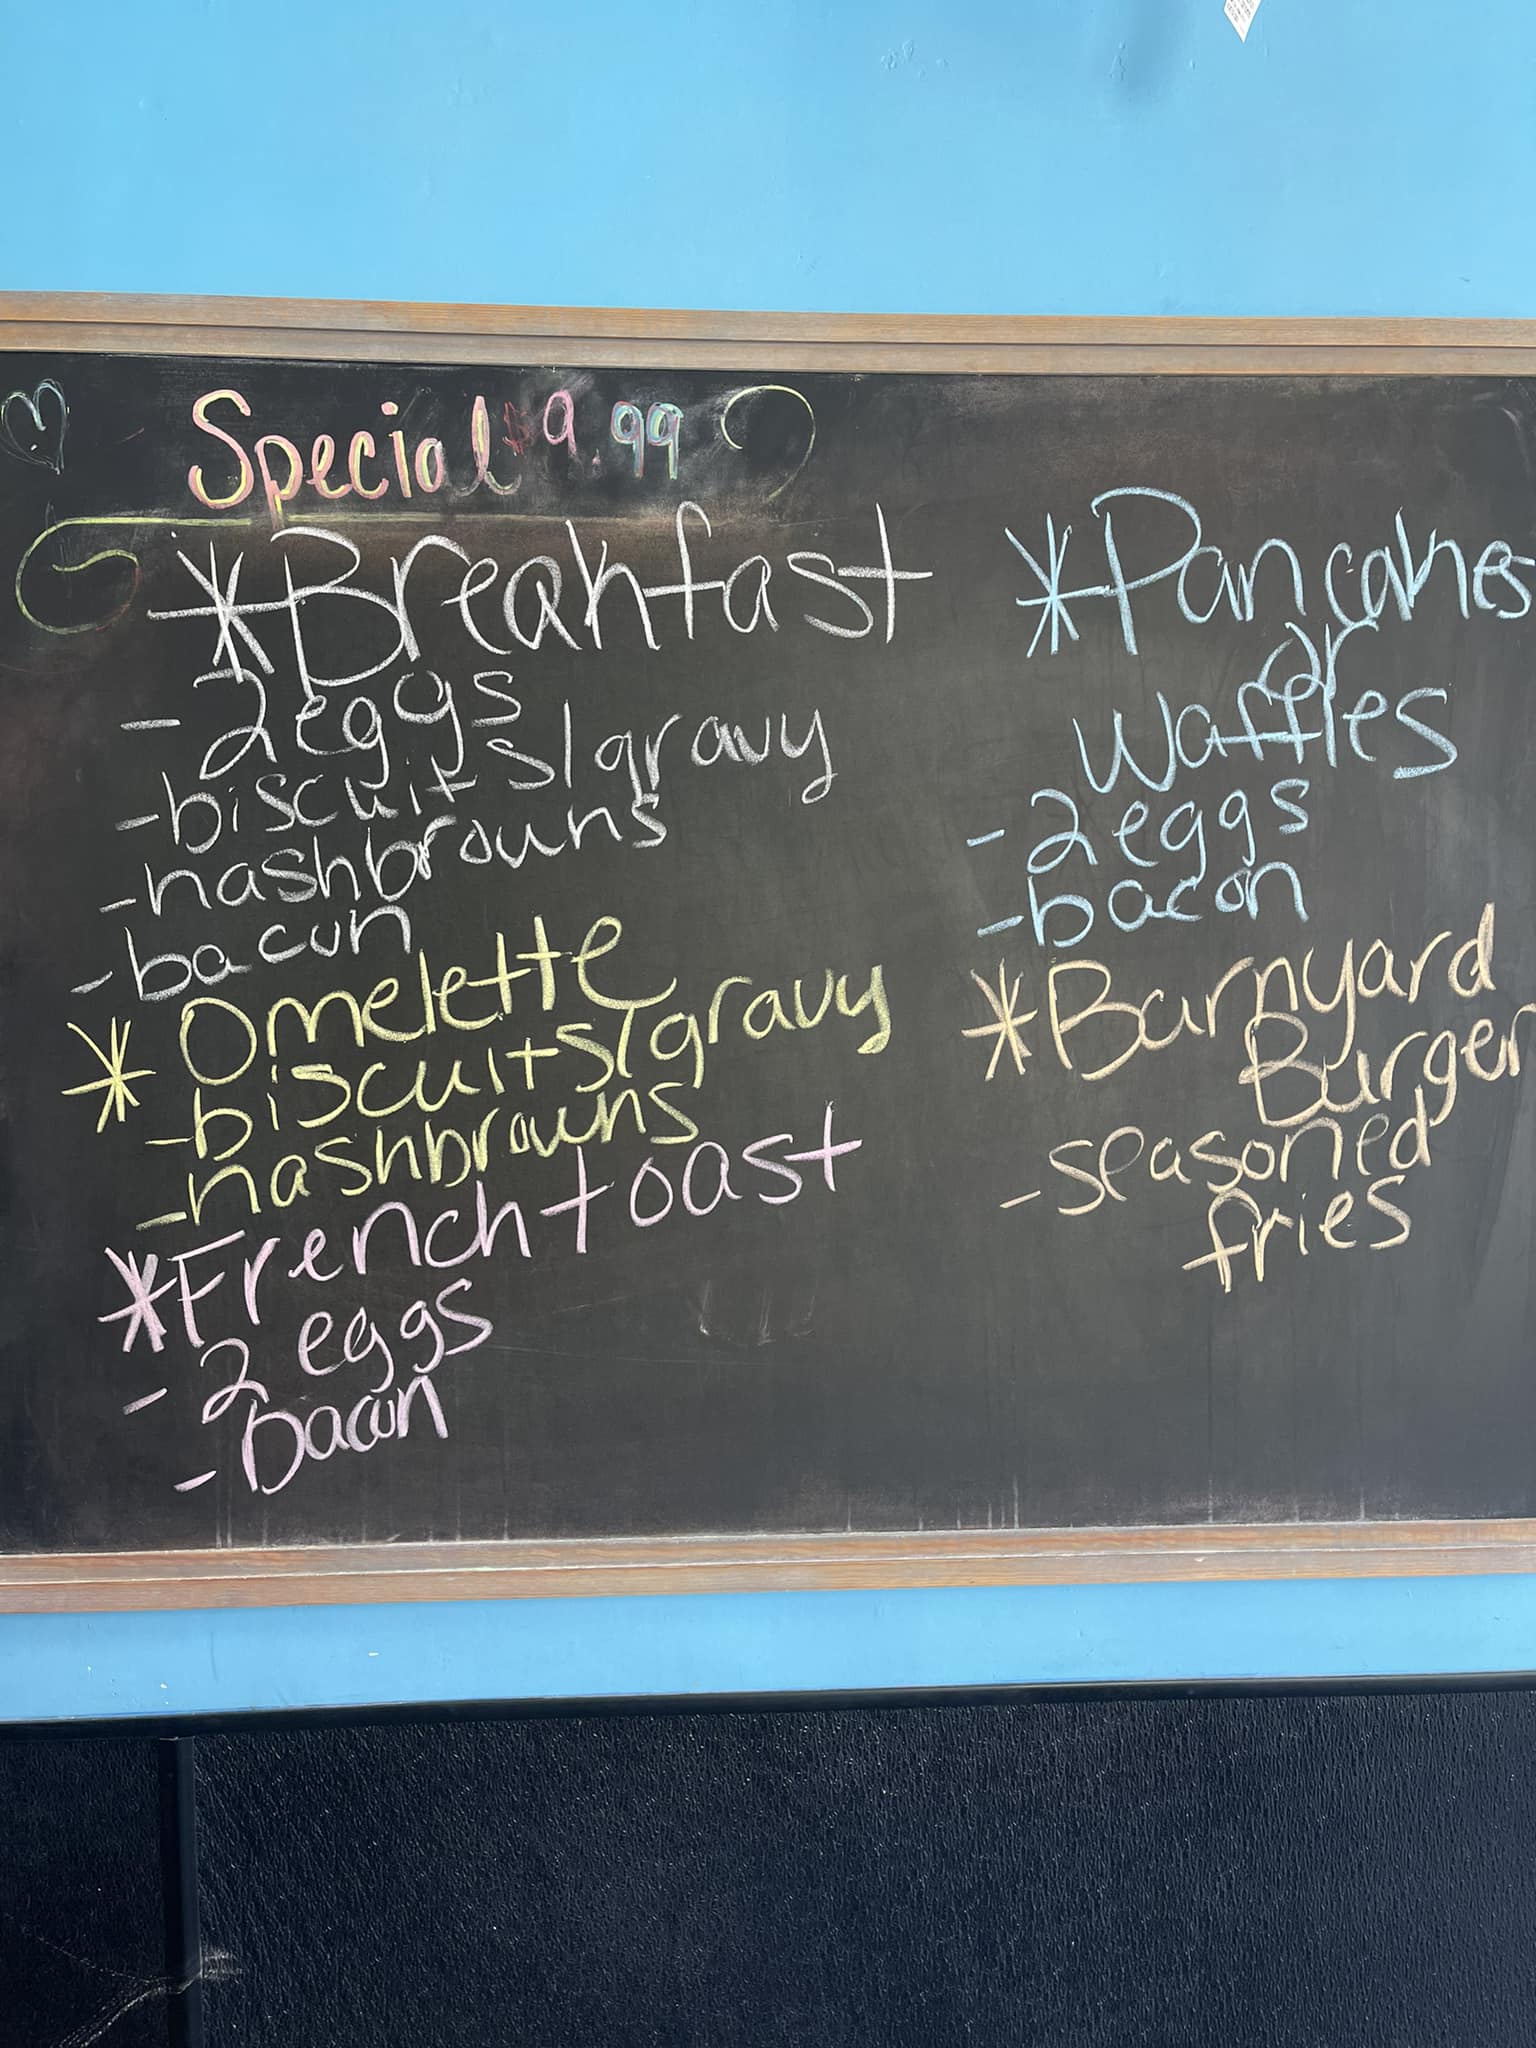 Special $9.99
*Breakfast
- 2 eggs
- biscuits/gravy
- hashbrowns
- bacon
* Omelette
- biscuits/gravy
- hashbrowns
*French toast
- 2 eggs
- bacon
*Pancakes
or
Waffles
- 2 eggs
- bacon
*Barnyard
Burger
- seasoned
fries